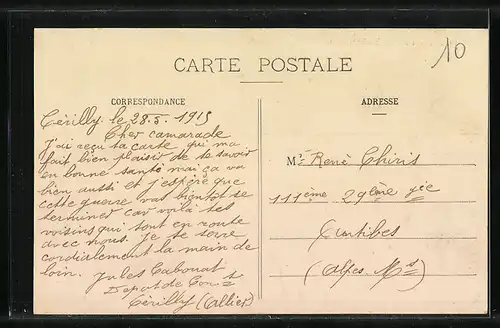 10
CARTE POSTALE
CORRESPONDANCE
Cérilly le 28.5.1915
Cher camarade
J'ai reçu ta carte qui ma
fait bien plaisir de te savoir
en bonne santé mai ça va
bien aussi et j'espère que
cette guerre vas bientôt se
terminer car voilà tes
voisins qui sont en route
avec nous. Je te serre
cordialement la main de
loin. Jules Cabourat
Depot de
Cérilly (Allier)
ADRESSE
Mr René Chiris
111ème 29ème Cie
Antibes
(Alpes Mmes)